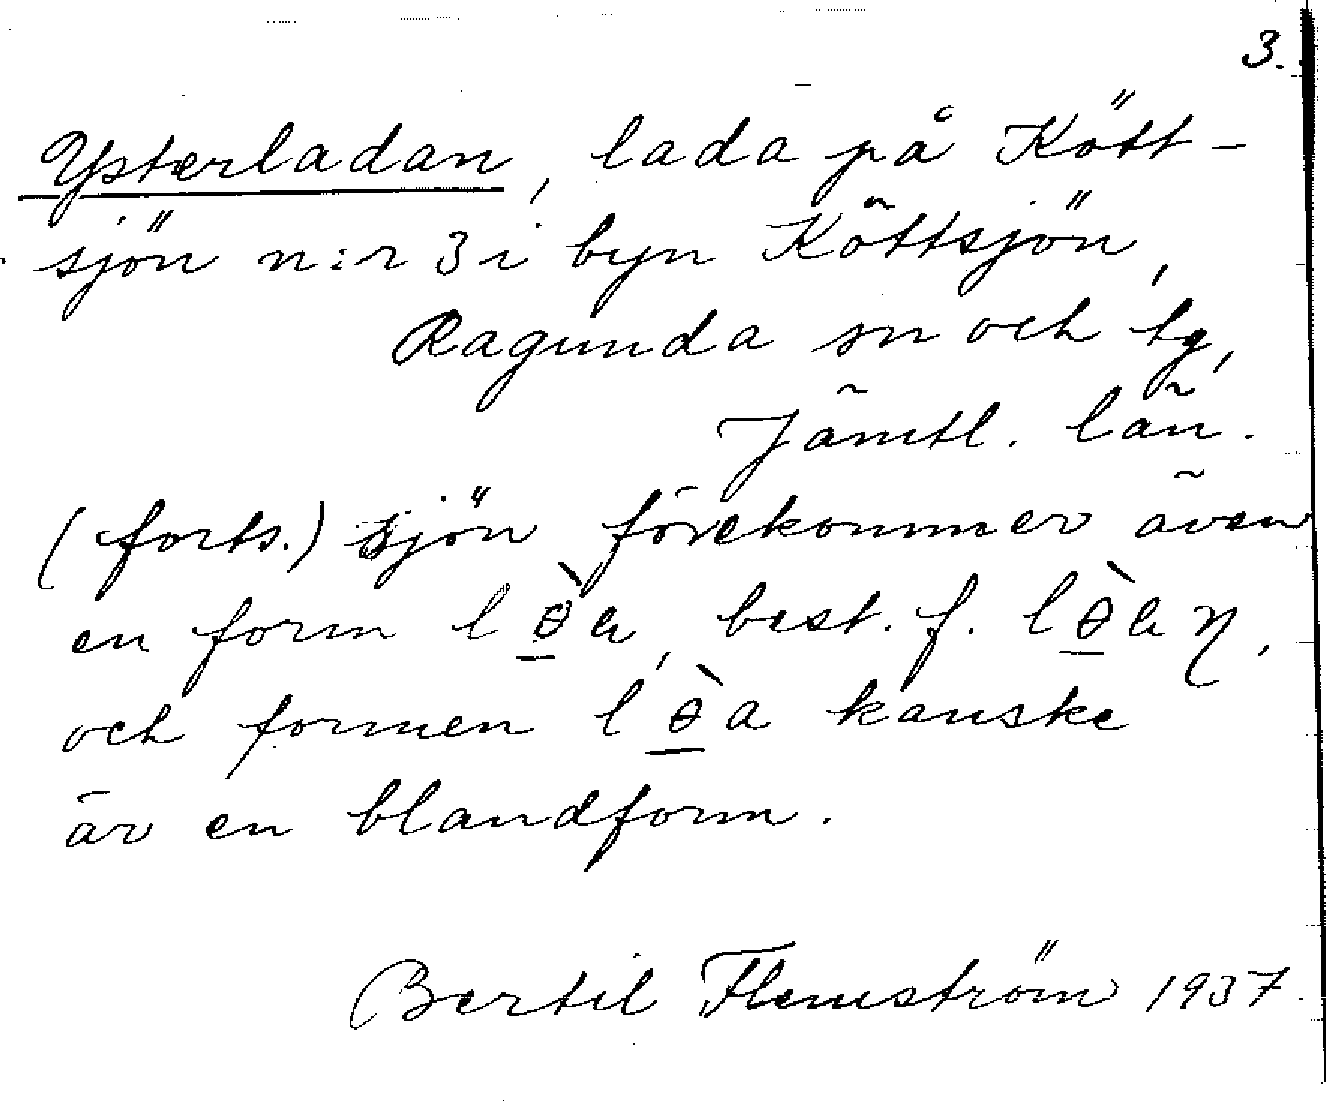 3.
Ysterladan, lada på Kött-
sjön n:r 3 i byn Köttsjön,
Ragunda sn och tg,
Jämtl. län.
(forts.) sjön förekommer även
en form l ɵ̠̀ a, best. f. l ɵ̠̀ a ŋ,
och formen l ɵ̠̀ a kanske
är en blandform.
Bertil Flemström 1937